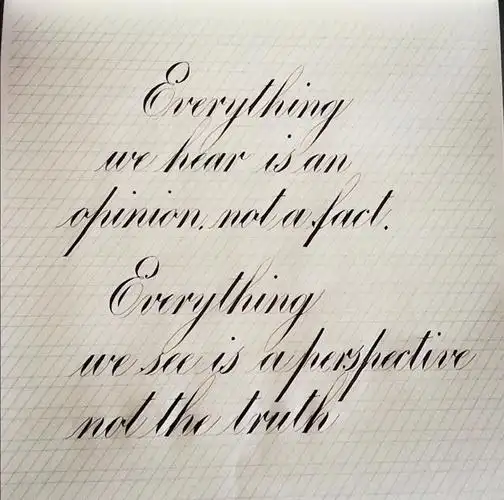 Everything
we hear is an
opinion, not a fact.
Everything
we see is a perspective
not the truth